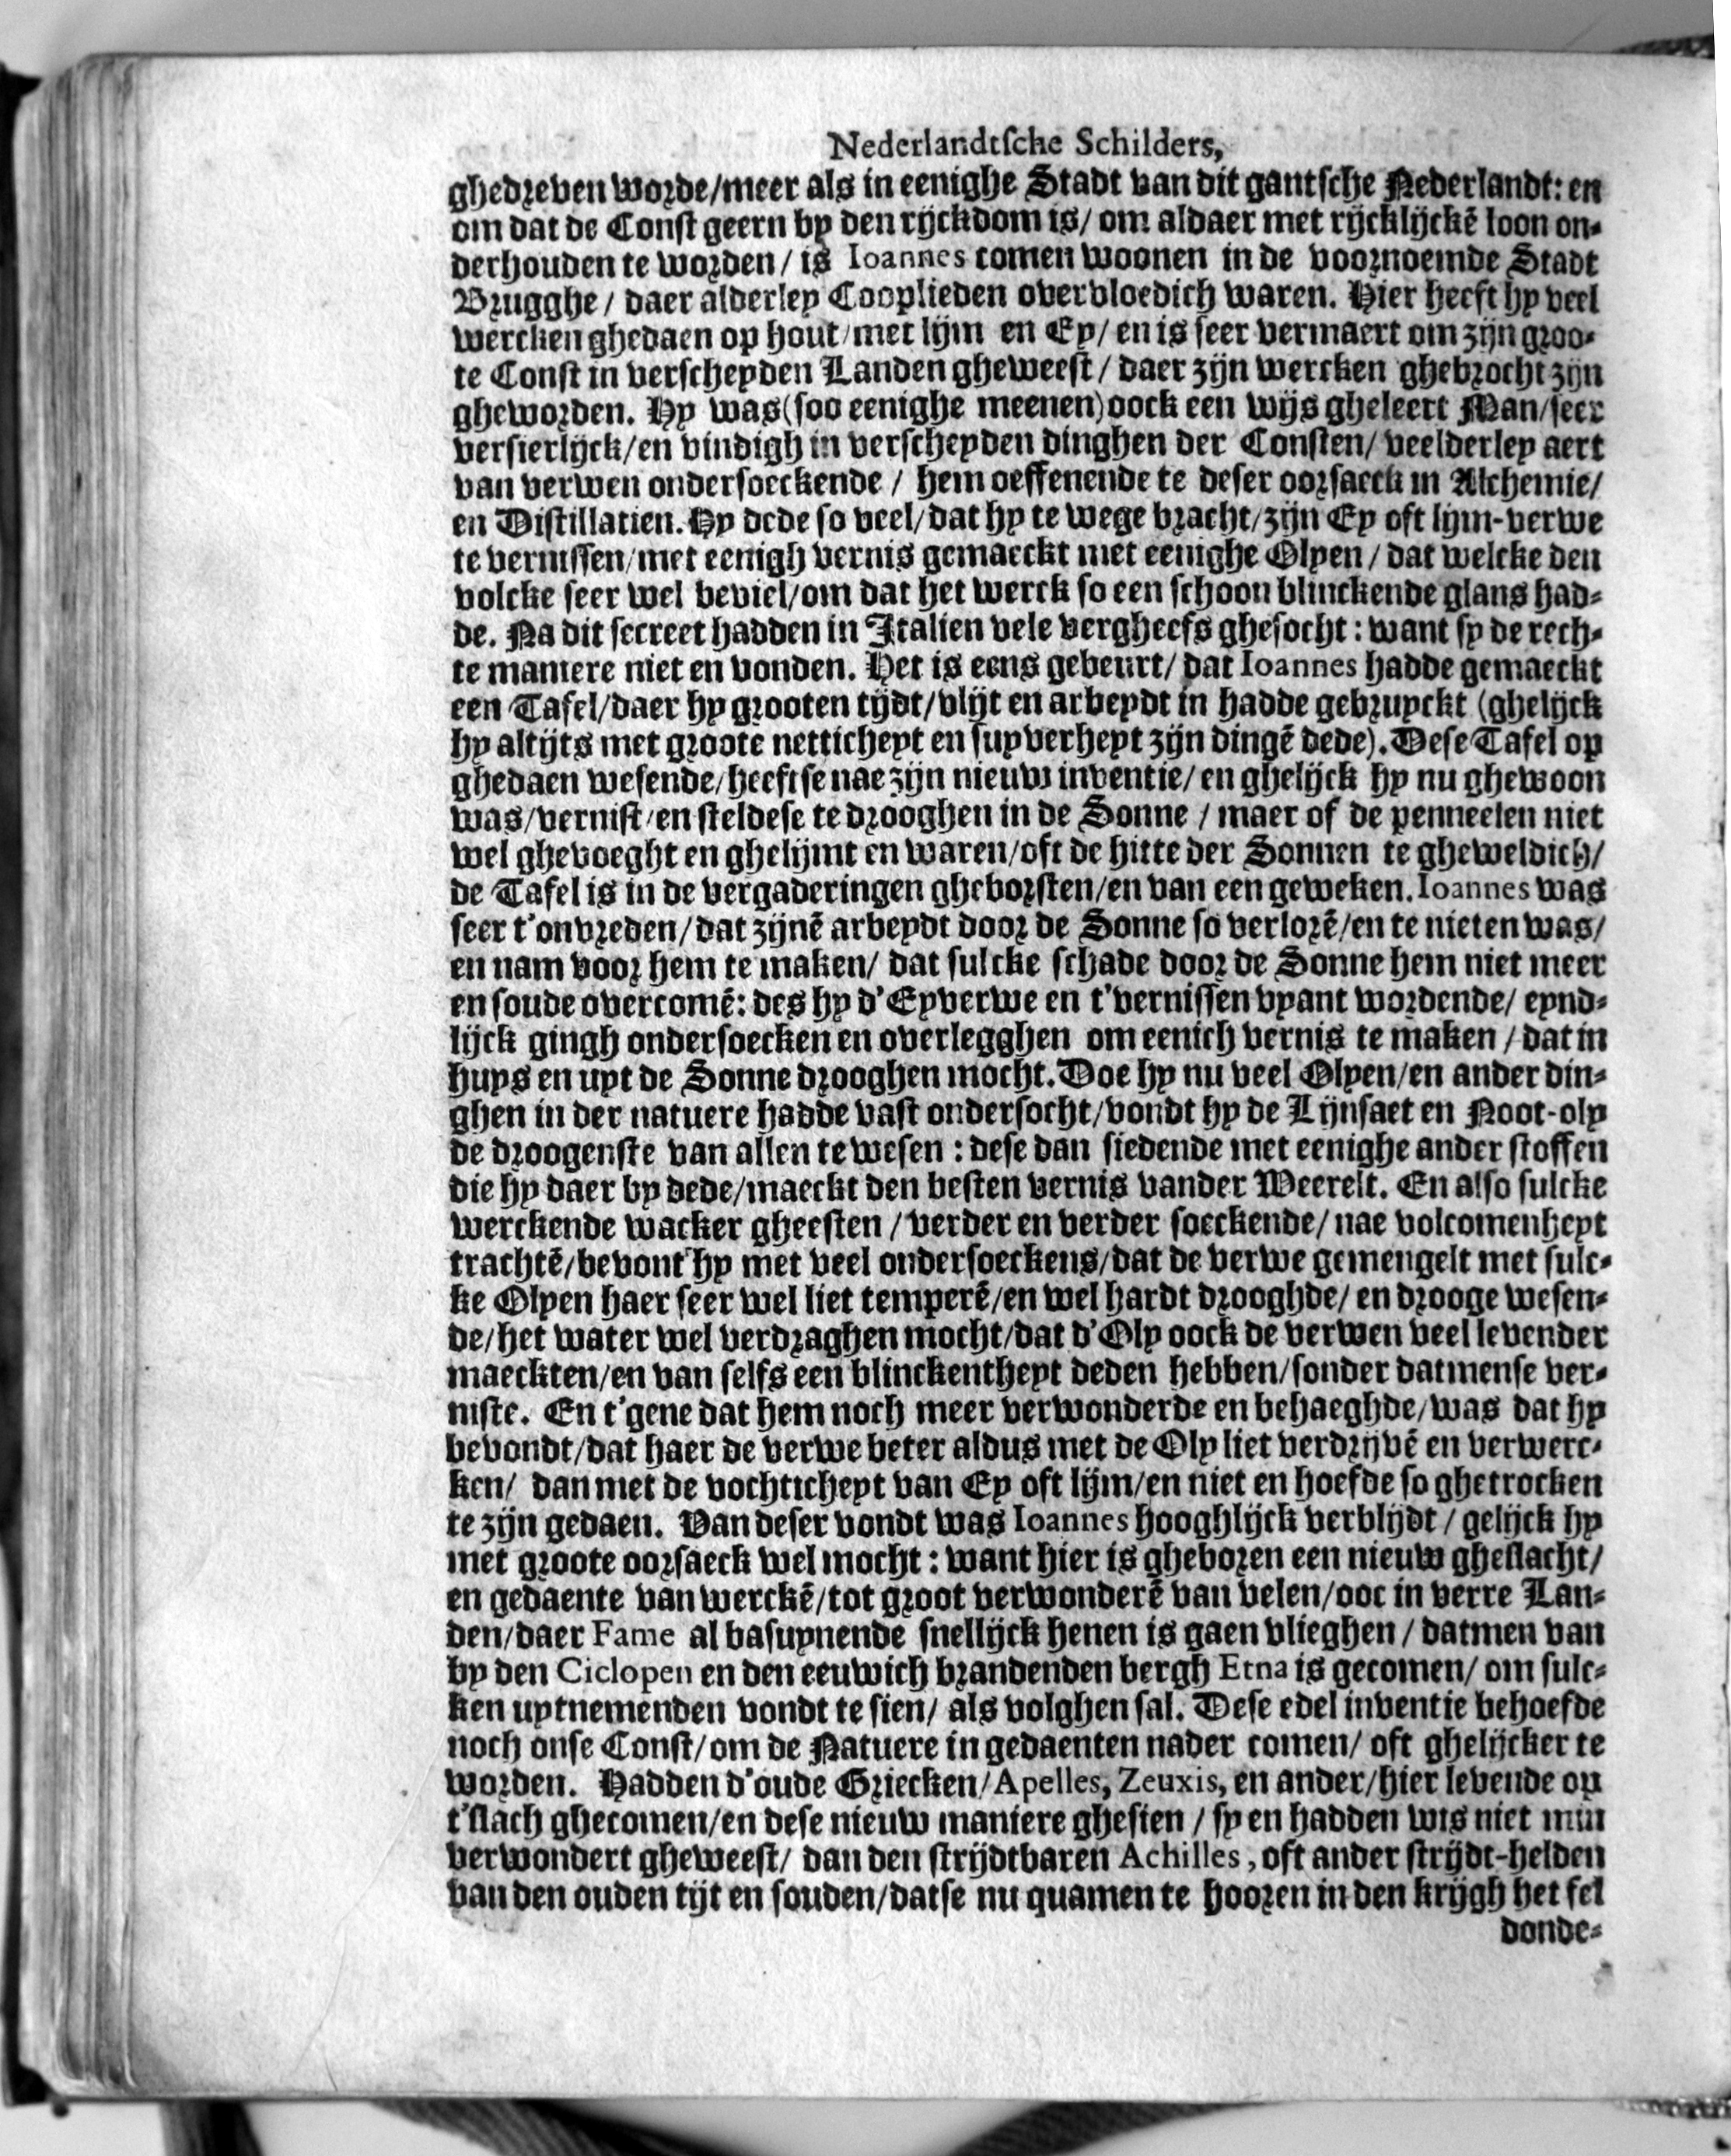 Nederlandtſche Schilders,
ghedꝛeven woꝛde/meer als in eenighe Stadt van dit gantſche Nederlandt: en
om dat de Conſt geern by den rijckdom is/ om aldaer met rijcklijckẽ loon on-
derhouden te woꝛden/ is Ioannes comen woonen in de vooꝛnoemde Stadt
Bꝛugghe/ daer alderley Cooplieden overvloedich waren. Hier heeft hy veel
wercken ghedaen op hout/met lijm en Ey/ en is ſeer vermaert om zijn gꝛoo-
te Conſt in verscheyden Landen gheweeſt/ daer zijn wercken ghebꝛocht zijn
ghewoꝛden. Hy was(ſoo eenighe meenen)oock een wijs gheleert Man/ſeer
verſierlijck/en vindigh in verscheyden dinghen der Conſten/ veelderley aert
van verwen onderſoeckende/ hem oeffenende te deſer ooꝛſaeck in Alchemie/
en Diſtillatien. Hy dede ſo veel/dat hy te wege bꝛacht/zijn Ey oft lijm-verwe
te verniſſen/met eenigh vernis gemaeckt met eenighe Olyen/ dat welcke den
volcke ſeer wel beviel/om dat het werck ſo een ſchoon blinckende glans had-
de. Na dit ſecreet hadden in Italien vele vergheefs gheſocht: want ſy de rech-
te maniere niet en vonden. Het is eens gebeurt/ dat Ioannes hadde gemaeckt
een Tafel/daer hy gꝛooten tijdt/vlijt en arbeydt in hadde gebꝛuyckt (ghelijck
hy altijts met gꝛoote netticheyt en ſuyverheyt zijn dingẽ dede). Deſe Tafel op
ghedaen weſende/heeftſe nae zijn nieuw inventie/ en ghelijck hy nu ghewoon
was/verniſt/en ſteldeſe te dꝛooghen in de Sonne/ maer of de penneelen niet
wel ghevoeght en ghelijmt en waren/oft de hitte der Sonnen te gheweldich/
de Tafel is in de vergaderingen gheboꝛſten/en van een geweken. Ioannes was
ſeer t'onvꝛeden/dat zijnẽ arbeydt dooꝛ de Sonne ſo verloꝛẽ/en te nieten was/
en nam vooꝛ hem te maken/ dat ſulcke ſchade dooꝛ de Sonne hem niet meer
en ſoude overcomẽ: des hy d'Eyverwe en t'verniſſen vyant woꝛdende/ eynd-
lijck gingh onderſoecken en overlegghen om eenich vernis te maken/ dat in
huys en uyt de Sonne dꝛooghen mocht. Doe hy nu veel Olyen/en ander din-
ghen in der natuere hadde vaſt onderſocht/vondt hy de Lijnſaet en Noot-oly
de dꝛoogenſte van allen te weſen: deſe dan ſiedende met eenighe ander ſtoffen
die hy daer by dede/maeckt den beſten vernis vander Weerelt. En alſo ſulcke
werckende wacker gheeſten/verder en verder ſoeckende/nae volcomenheyt
trachtẽ/bevont hy met veel onderſoeckens/dat de verwe gemengelt met ſulc-
ke Olyen haer ſeer wel liet temperẽ/en wel hardt dꝛooghde/ en dꝛooge weſen-
de/het water wel verdꝛaghen mocht/dat d'Oly oock de verwen veel levender
maeckten/en van ſelfs een blinckentheyt deden hebben/ſonder datmenſe ver-
niſte. En t'gene dat hem noch meer verwonderde en behaeghde/was dat hy
bevondt/dat haer de verwe beter aldus met de Oly liet verdꝛijvẽ en verwerc-
ken/ dan met de vochticheyt van Ey oft lijm/en niet en hoefde ſo ghetrocken
te zijn gedaen. Van deſer vondt was Ioannes hooghlijck verblijdt/ gelijck hy
met gꝛoote ooꝛſaeck wel mocht: want hier is gheboꝛen een nieuw gheſlacht/
en gedaente van werckẽ/tot gꝛoot verwonderẽ van velen/ooc in verre Lan-
den/daer Fame al baſuynende ſnellijck henen is gaen vlieghen/ datmen van
by den Ciclopen en den eeuwich bꝛandenden bergh Etna is gecomen/ om ſulc-
ken uytnemenden vondt te ſien/ als volghen ſal. Deſe edel inventie behoefde
noch onſe Conſt/om de Natuere in gedaenten nader comen/ oft ghelijcker te
woꝛden. Hadden d'oude Gꝛiecken/Apelles, Zeuxis, en ander/hier levende op
t'ſlach ghecomen/en deſe nieuw maniere gheſien/ ſy en hadden wis niet min
verwondert gheweeſt/ dan den ſtrijdtbaren Achilles, oft ander ſtrijdt-helden
van den ouden tijt en ſouden/datſe nu quamen te hooꝛen in den krijgh het fel
donde-